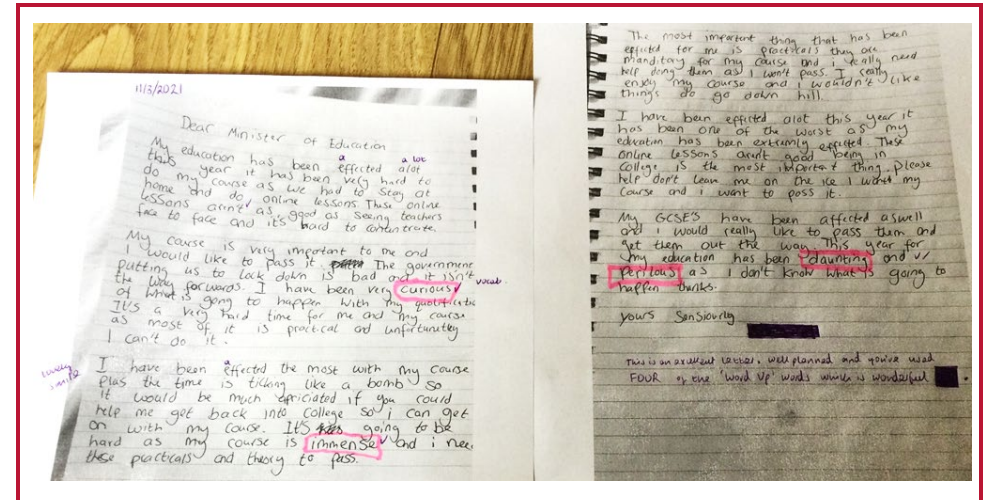 11/3/2021
Dear Minister of Education
My education has been effected alot
a
a lot
this year it has been very hard to
do my course as we had to stay at
home and do online lessons. These online
lessons aren't as good as seeing teachers
face to face and it's hard to contentrate.
My course is very important to me and
I would like to pass it. The government
putting us to lock down is bad and it isn't
the way forwards. I have been very curious
vocab.
of what is going to happen with my qualification
It's a very hard time for me and my course
as most of it is practical and unfortunetley
I can't do it.
I have been effected the most with my course
a
lovely
simile
plus the time is ticking like a bomb so
it would be much apriciated if you could
help me get back into College so i can get
on with my course. It's going to be
hard as my course is immense and i need
these practicals and theory to pass.
The most important thing that has been
effited for me is practicals they are
manditary for my course and i really need
help doing them as I won't pass. I really
enjoy my course and i wouldn't like
things do go down hill.
I have been effited alot this year it
has been one of the worst as my
education has been extramly effited. These
online lessons aren't good being in
College is the most important thing. please
help don't leave me on the ice I want my
course and i want to pass it.
My GCSE'S have been affected aswell
and i would really like to pass them and
get them out the way. This year for
my education has been daunting and
perilous as i don't know what is going to
happen thanks.
yours Sensiourly
This is an excellent letter, well planned and you've used
FOUR of the 'Word Up' words which is wonderful